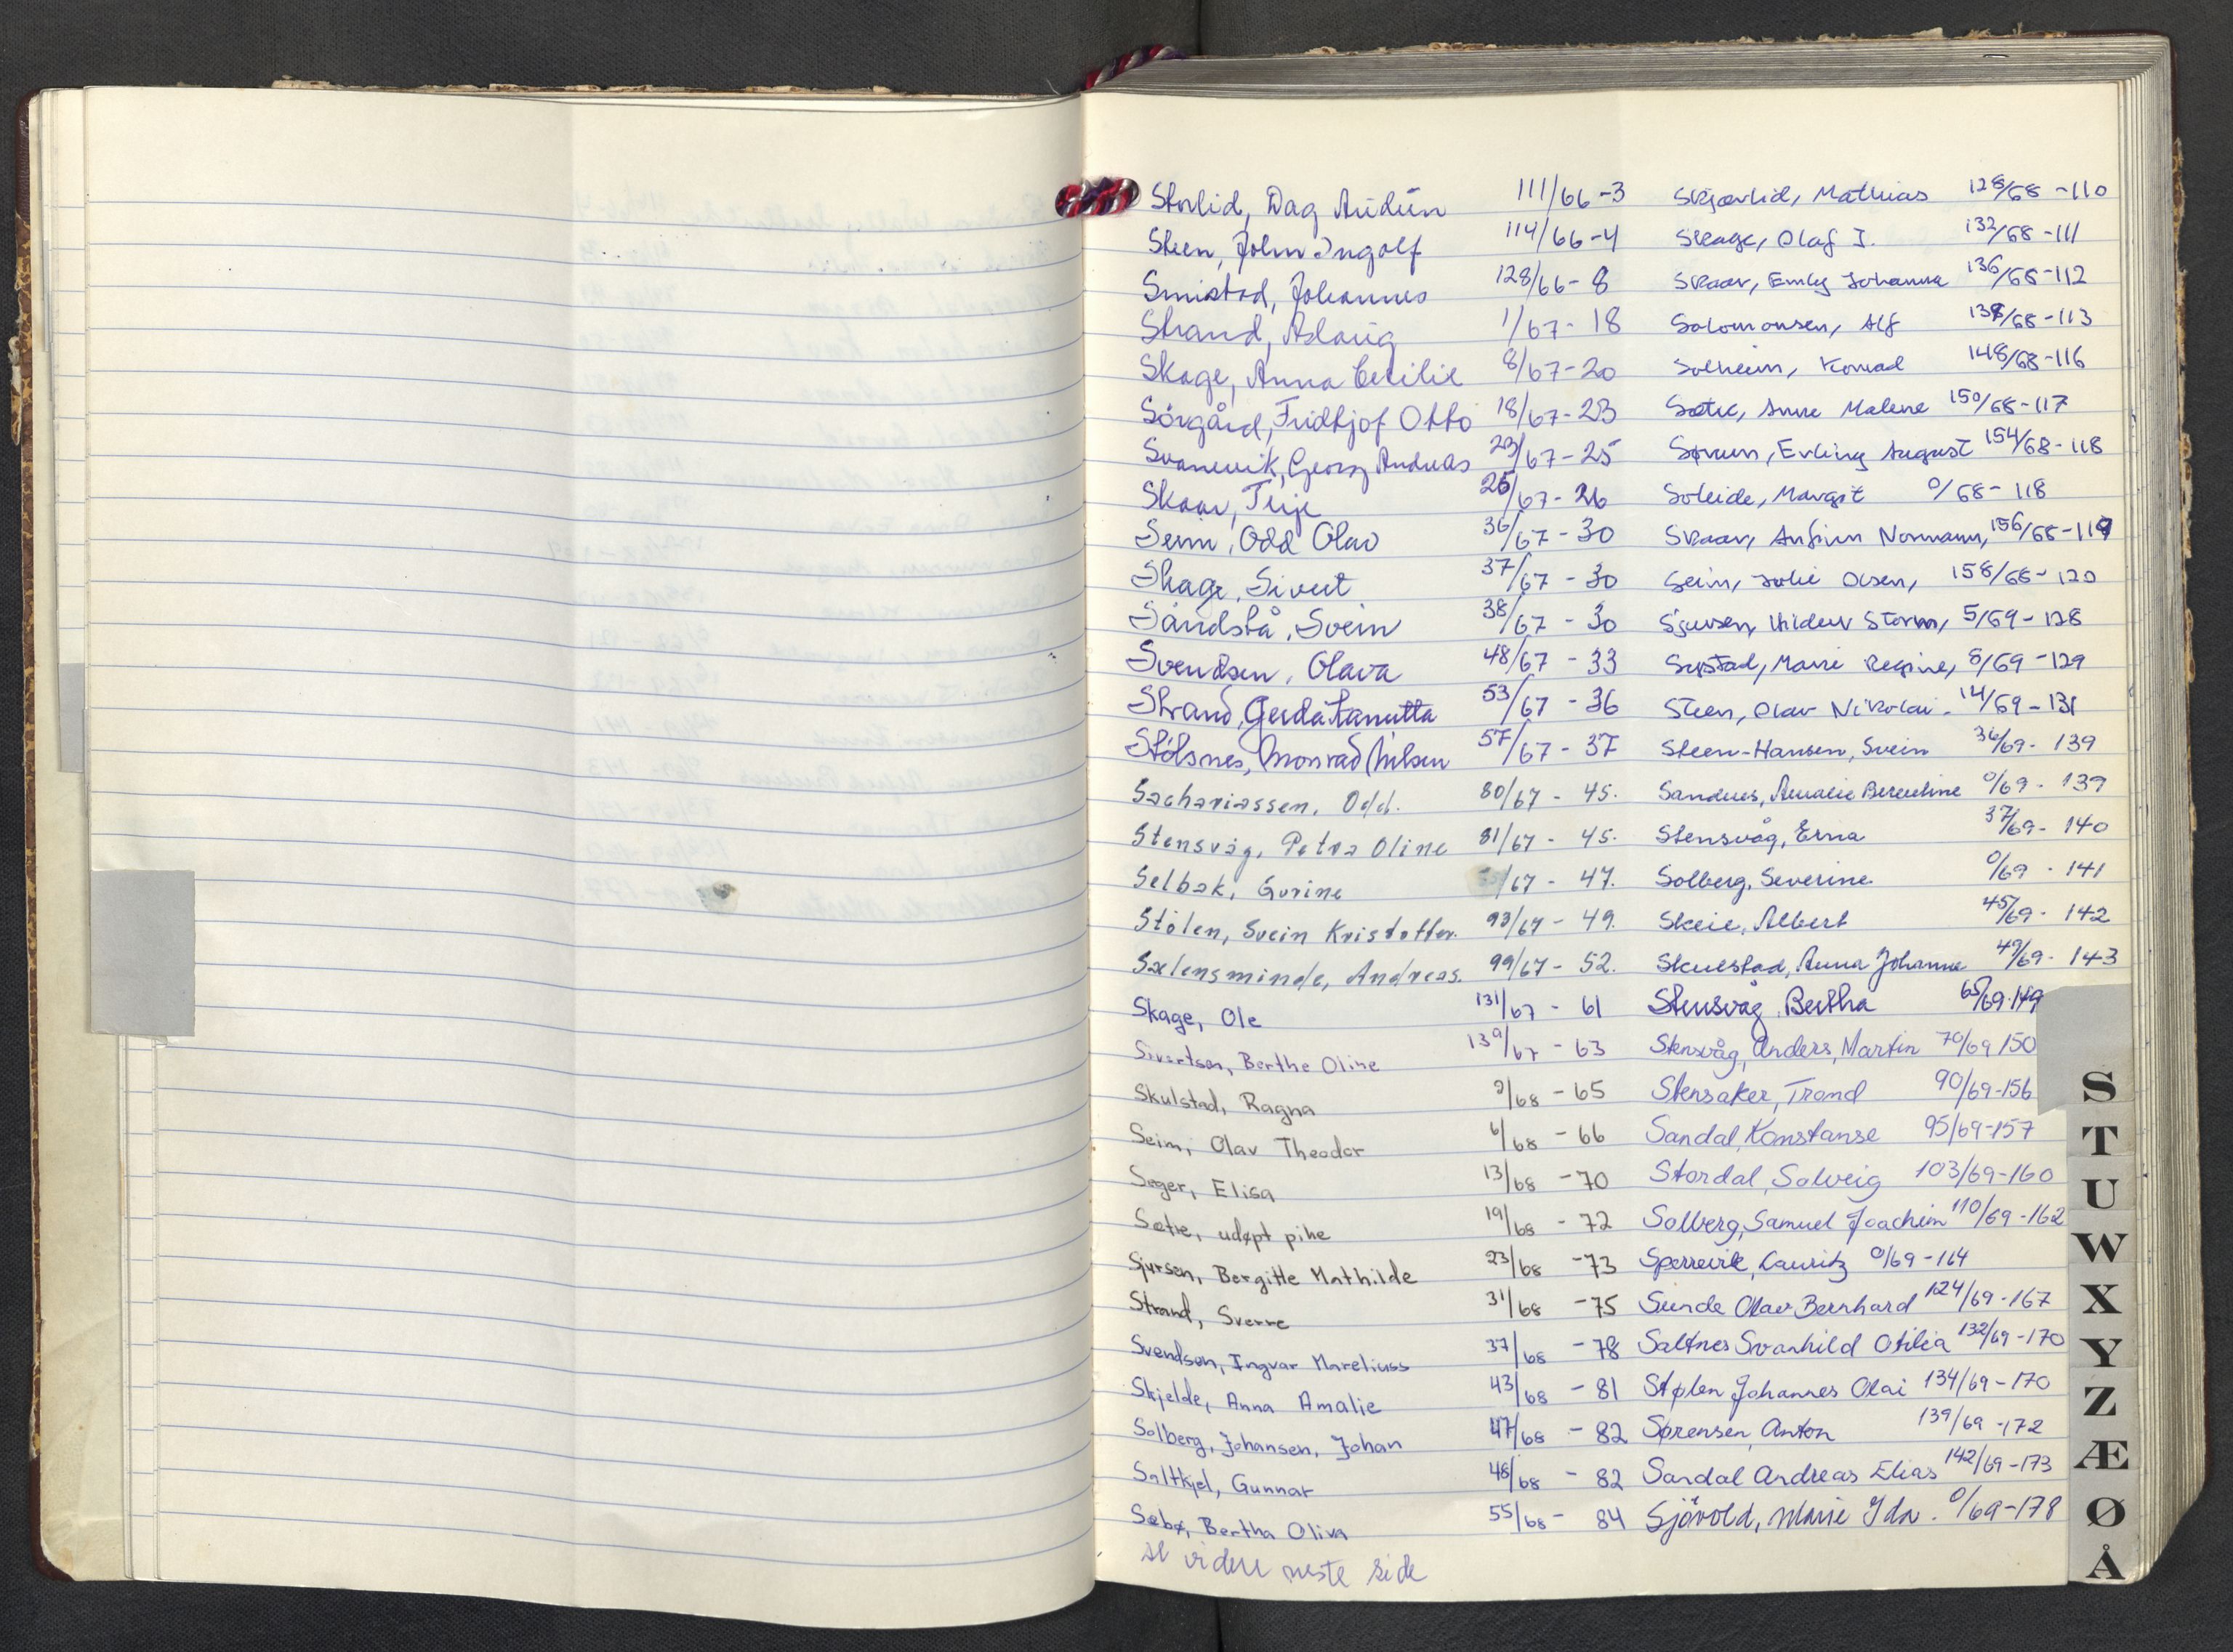 Storlid, Dag Audun 111/66 - 3
Steen, John Ingolf 114/66 - 4
Smistad, Johannes 128/66 - 8
Strand, Aslaug 1/67 - 18
Skage, Anna Cecilie 8/67 - 20
Sörgård, Fridtjof Otto 18/67 - 23
Svanevik, Georg Andreas 23/67 - 25
Skaar, Terje 26/67 - 26
Seim, Odd Olav 36/67 - 30
Skage, Sivert 37/67 - 30
Sandstå, Svein 38/67 - 30
Svendsen, Olava 48/67 - 33
Strand, Gerda 53/67 - 36
Stölsnes, Monrad Nilsen 57/67 - 37
Sachariassen, Odd. 80/67 - 45.
Stensvåg, Petra Oline 81/67 - 45.
Selbak, Gurine /67 - 47.
Stölen, Svein Kristoffer. 93/67 - 49.
Sælensminde, Andreas. 99/67 - 52.
Skage, Ole 131/67 - 61
Sivertsen, Berthe Oline 139/67 - 63
Skulstad, Ragna /68 - 65
Seim, Olav Theodor 6/68 - 66
Sæger, Elisa 13/68 - 70
Sætre, udøpt pike 19/68 - 72
Sjursen, Bergitte Mathilde 23/68 - 73
Strand, Sverre 31/68 - 75
Svendsen, Ingvar Mareliuss 37/68 - 78
Skjelde, Anna Amalie 43/68 - 81
Solberg, Johansen, Johan 47/68 - 82
Saltkjel, Gunnar 48/68 - 82
Sæbø, Bertha Oliva 55/68 - 84
se videre neste side
Skjærlid, Mathias 128/68 - 110
Skage, Olaf I. 132/68 - 111
Skaar, Emly Johanna 136/68 - 112
Salomonsen, Alf 138/68 - 113
Solheim, Konrad 148/68 - 116
Sætre, Anne Malene 150/68 - 117
Sørum, Erling August 154/68 - 118
Soleide, Margit 0/68 - 118
Skaar, Anfinn Normann, 156/68 - 119
Seim, Julie Olsen, 158/68 - 120
Sjursen, Hildur Storm, 5/69 - 128
Marie Regine, 8/69 - 129
Steen, Olav Nikolai - 14/69 - 131
Steen-Hansen, Svein 36/69 - 139
Sandnes, Amalie Berentine 0/69 - 139
Stensvåg, Erna 37/69 - 140
Solberg, Severine 0/69 - 141
Skeie, Albert 45/69 - 142
Skulstad, Anna Johanne 49/69 - 143
Stensvåg, Bertha 65/69 - 149
Stensvåg, Anders, Martin 70/69 150
Stensaker, Trond 90/69 - 156
Sandal, Konstanse 95/69 - 157
Stordal, Solveig 103/69 - 160
Solberg, Samuel Joachim 110/69 - 162
Sperrevik, Lauritz 0/69 - 164
Sunde Olav Bernhard 124/69 - 167
Saltnes Svanhild Otilia 132/69 - 170
Stølen Johannes Olai 134/69 - 170
Sørensen, Anton 139/69 - 172
Sandal Andreas Elias 142/69 - 173
Sjövold, Marie Ida. 0/69 - 178
S
T
U
W
X
Y
Z
Æ
Ø
Å